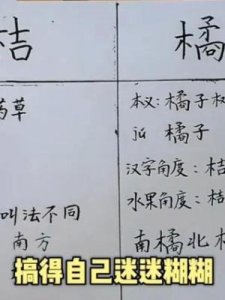 桔
橘
药草
叫法不同
南方
本义：橘子
jú 橘子
汉字角度：桔
水果角度：桔
南橘北
搞得自己迷迷糊糊